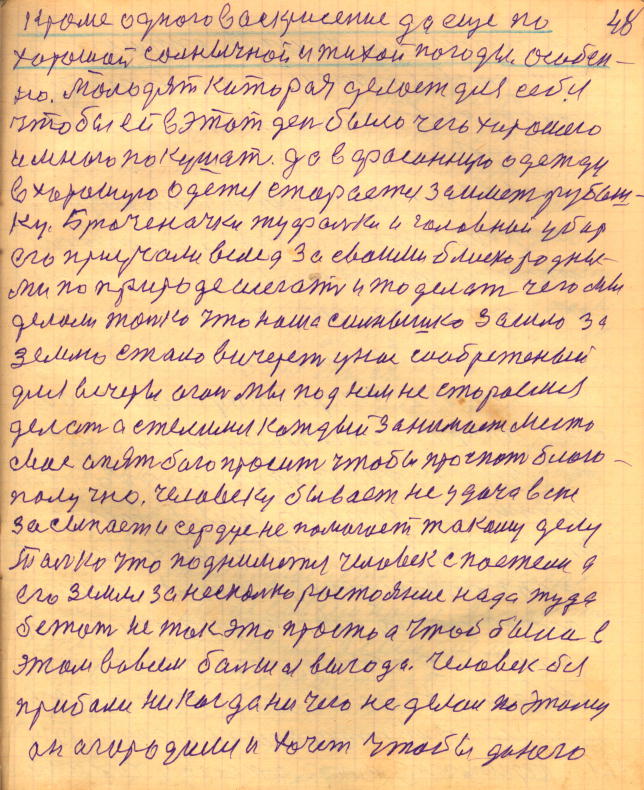 48
Кроме одного васкрисение да еще по
хорошой солнычной и тихой погоды. Особен-
но. Молодят каторая делоет для себя
чтобы ей в этот ден было чего харошего
и много пакушат. да в фасонную одежду
в харошую одется стараетця займет рубаш-
ку. Боточеначки туфалки и головный убор
его приучали вслед за своими близкородны-
ми по природе шегать и то делат чего мы
делали толко что наша сылнышко зашло за
землю стало вичереть у нас сообретеный
для вечеры огон мы под ним не стораемся
делат а стелимся каждый занимает место
свое опят бого просит чтобы прочпат благо-
получно. Человеку бывает не удача в сне
засыпает и сердце не помогает такому делу
Толко что подниметця человек с постели а
его земля за несколко ростояние нада туда
бежат не так это просто а чтоб была в
этом вовсем балшая выгода. Человек бы
прибали никогда ничего не делал поэтому
он агородили и хочет чтобы до него